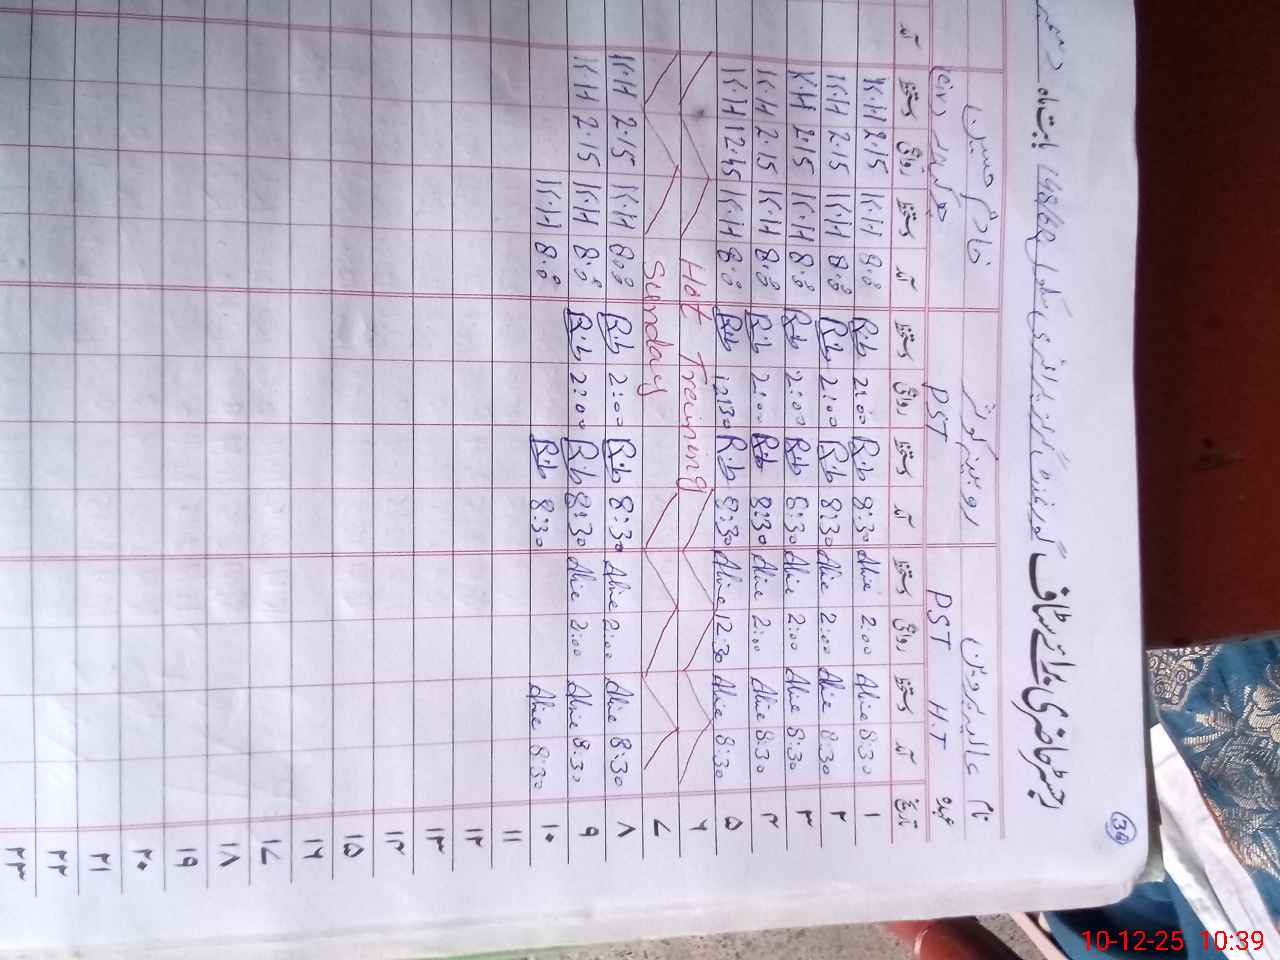 36
رجسٹر حاضری برائے سٹاف گورنمنٹ گرلز پرائمری سکول بابت ماہ دسمبر
نام عالیہ پروین روبینہ کوثر خادم حسین
عہدہ PST H.T PST چوکیدار
تاریخ آمد دستخط روانگی دستخط آمد دستخط روانگی دستخط آمد دستخط روانگی دستخط آمد
۱ 8:30 Alia 2:00 Alia 8:30 R.b 2:00 R.b 8:0 K.H 2.15 K.H
۲ 8:30 Alia 2:00 Alia 8:30 R.b 2:00 R.b 8:0 K.H 2.15 K.H
۳ 8:30 Alia 2:00 Alia 8:30 R.b 2:00 R.b 8:0 K.H 2.15 K.H
۴ 8:30 Alia 2:00 Alia 8:30 R.b 2:00 R.b 8:0 K.H 2.15 K.H
۵ 8:30 Alia 12:30 Alia 8:30 R.b 12:30 R.b 8:0 K.H 12.45 K.H
۶ Hot Training
۷ Sunday
۸ 8:30 Alia 2:00 Alia 8:30 R.b 2:00 R.b 8:0 K.H 2.15 K.H
۹ 8:30 Alia 2:00 Alia 8:30 R.b 2:00 R.b 8:0 K.H 2.15 K.H
۱۰ 8:30 Alia 8:30 R.b 8:0 K.H
۱۱
۱۲
۱۳
۱۴
۱۵
۱۶
۱۷
۱۸
۱۹
۲۰
۲۱
۲۲
۲۳
10-12-25 10:39